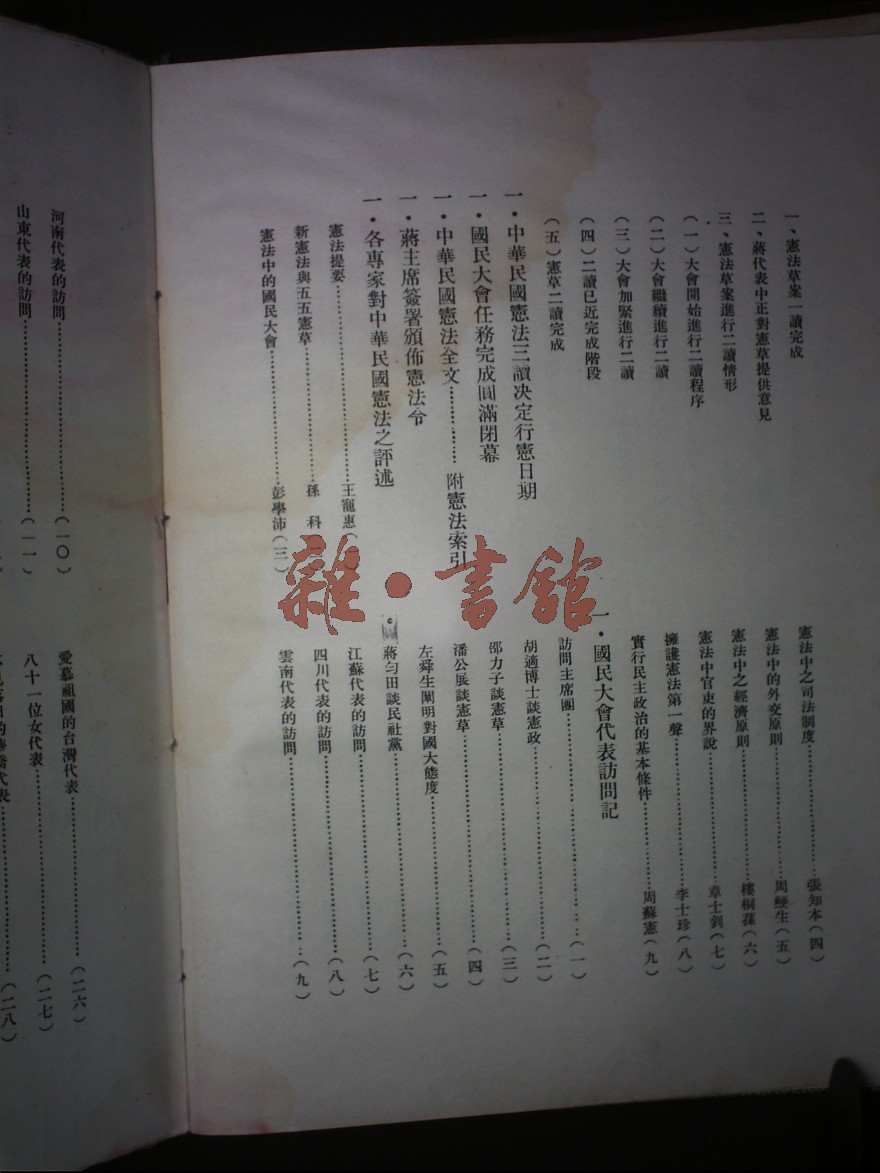 一、憲法草案一讀完成
二、蔣代表中正對憲草提供意見
三、憲法草案進行二讀情形
(一)大會開始進行二讀程序
(二)大會繼續進行二讀
(三)大會加緊進行二讀
(四)二讀已近完成階段
(五)憲草二讀完成
一·中華民國憲法三讀決定行憲日期
一·國民大會任務完成圓滿閉幕
一·中華民國憲法全文…………附憲法索引
一·蔣主席簽署頒佈憲法令
一·各專家對中華民國憲法之評述
憲法提要……………………王寵惠(
新憲法與五五憲草……………孫 科
憲法中的國民大會……………彭學沛(三)
憲法中之司法制度……………張知本(四)
憲法中的外交原則……………周鯁生(五)
憲法中之經濟原則……………樓桐蓀(六)
憲法中官吏的界說……………章士釗(七)
擁護憲法第一聲………………李士珍(八)
實行民主政治的基本條件………周蘇憲(九)
一·國民大會代表訪問記
訪問主席團……………………(一)
胡適博士談憲政………………(二)
邵力子談憲草…………………(三)
潘公展談憲草…………………(四)
左舜生闡明對國大態度…………(五)
蔣勻田談民社黨………………(六)
江蘇代表的訪問………………(七)
四川代表的訪問………………(八)
雲南代表的訪問………………(九)
河南代表的訪問………………(一〇)
山東代表的訪問………………(一一)
愛慕祖國的台灣代表……………(二六)
八十一位女代表………………(二七)
代表……………(二八)
雜·書館